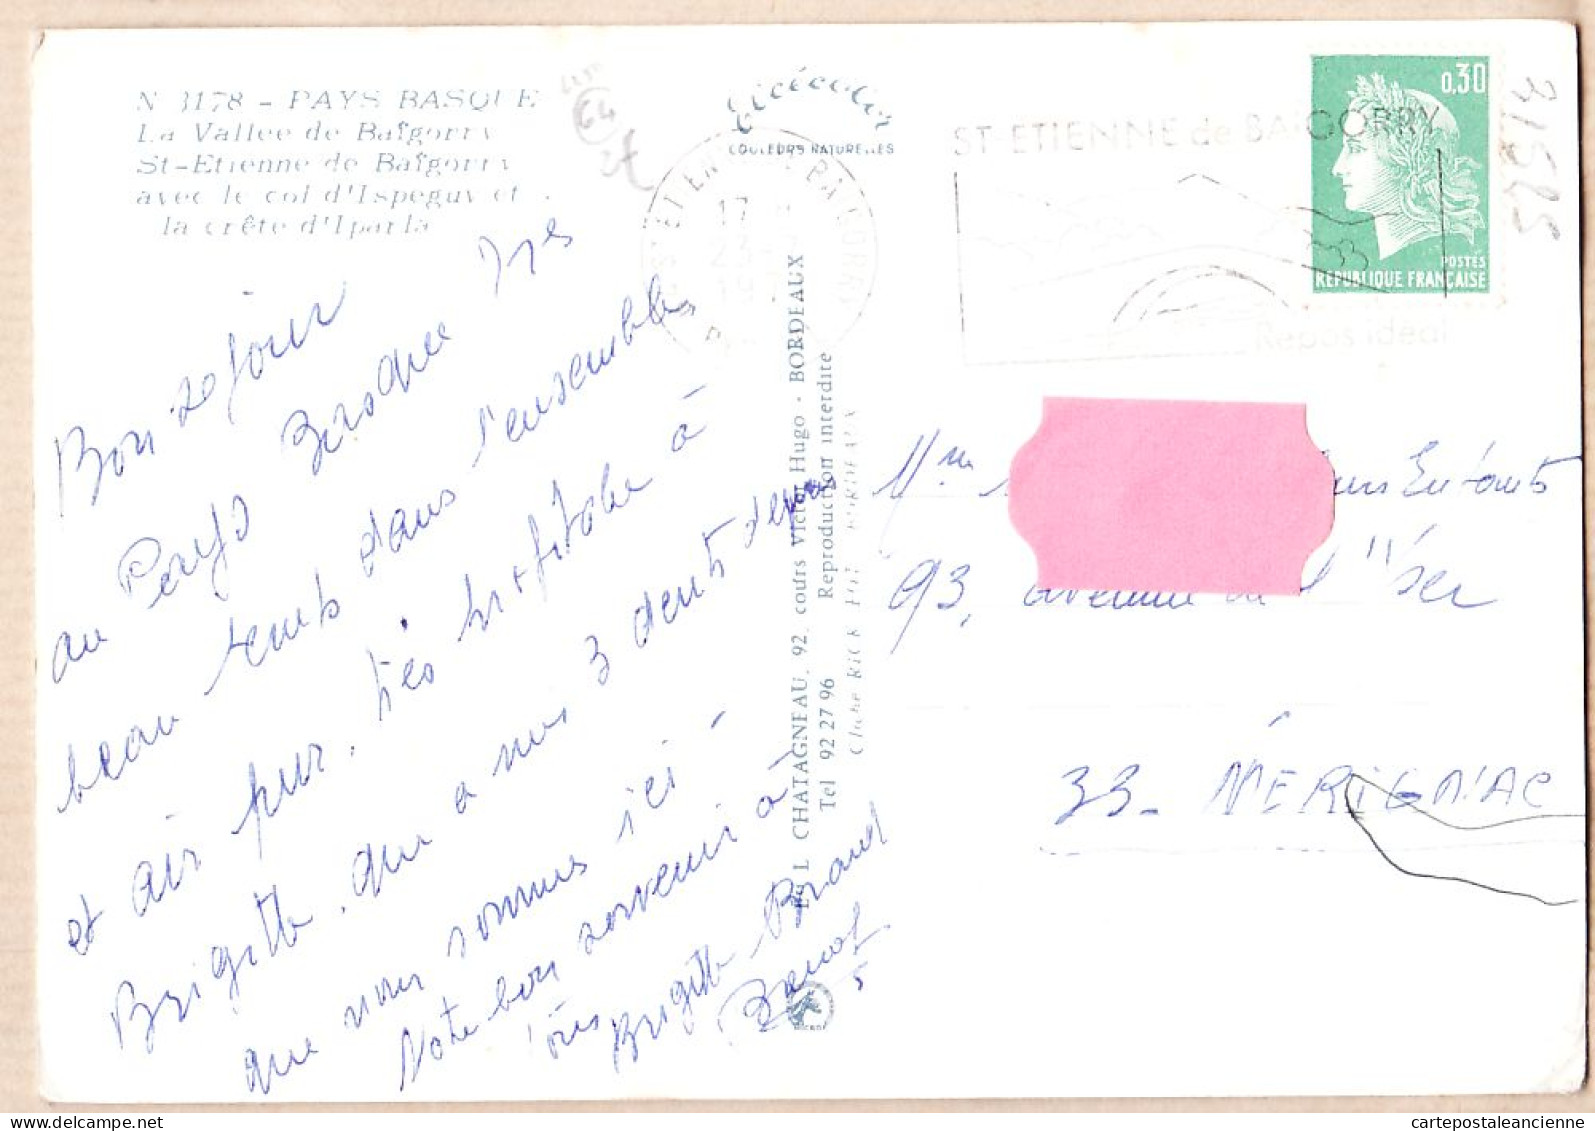 N 3178 - PAYS BASQUE
La Vallée de Baïgorry
St-Etienne de Baïgorry
avec le col d'Ispeguy et
la crête d'Iparla
COULEURS NATURELLES
ST-ETIENNE de BAIGORRY
Repos idéal
0,30
POSTES
REPUBLIQUE FRANÇAISE
31585
64
17
Bon séjour
au Pays Basque Très
beau temps dans l'ensemble
et air pur, très profitable à
Brigitte, qui a mis 3 dents depuis
que nous sommes ici -
Notre bon souvenir à
tous Brigitte
L CHATAGNEAU, 92, cours Victor Hugo - BORDEAUX
Tel 92 27 96 Reproduction interdite
Mme
Enfants
93, avenue de l'Yser
33 - MÉRIGNAC
cartepostaleancienne